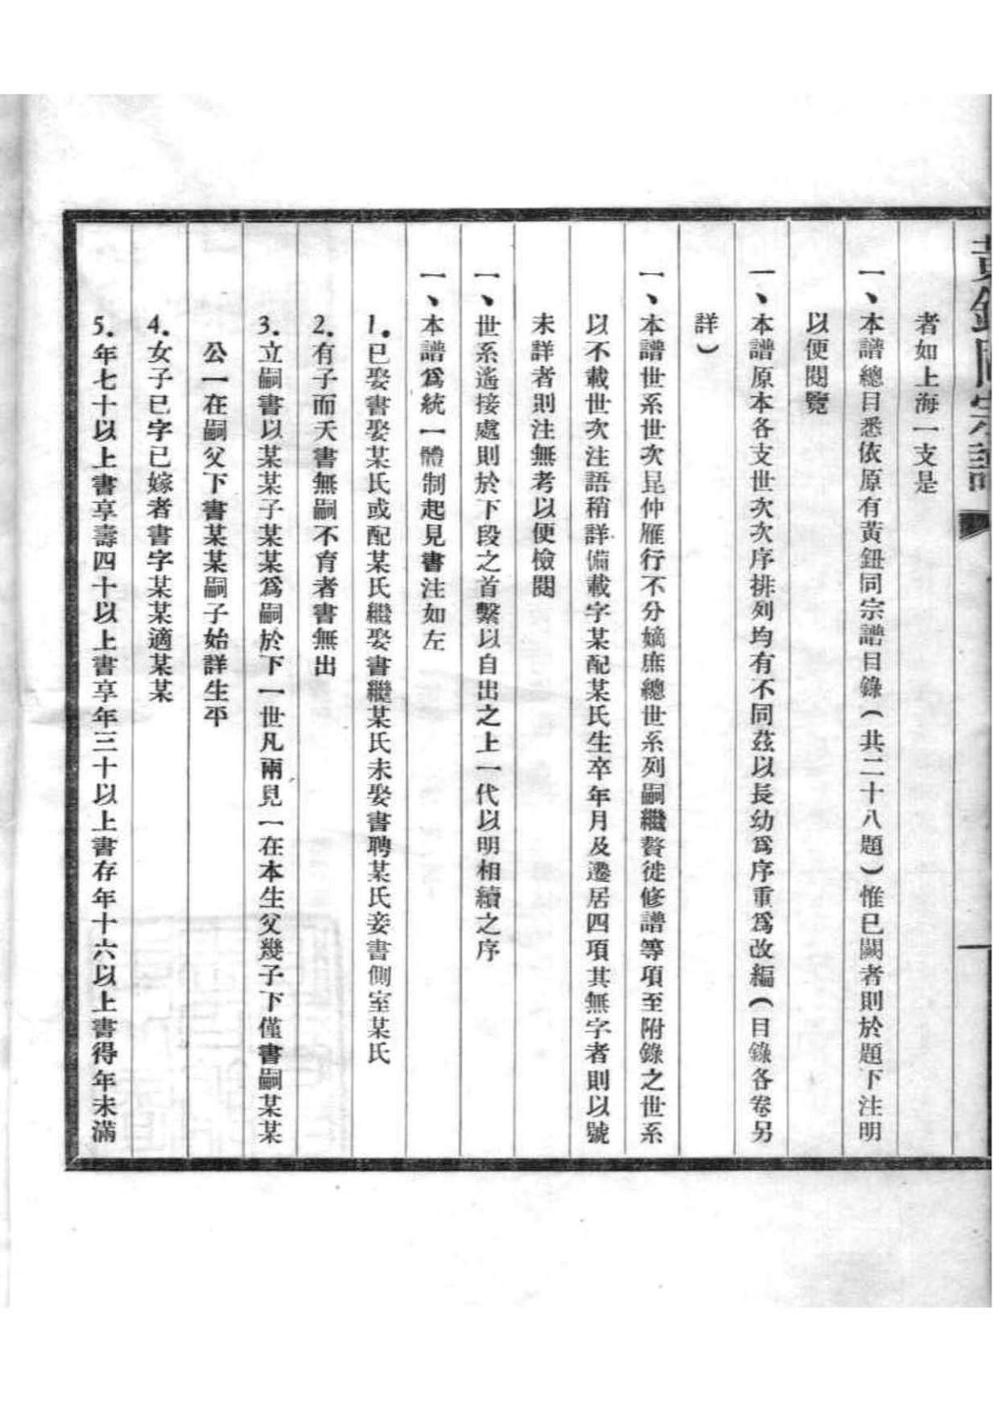 黃鈕同宗譜
者如上海一支是
一、本譜總目悉依原有黃鈕同宗譜目錄(共二十八題)惟已闕者則於題下注明
以便閱覽
一、本譜原本各支世次次序排列均有不同茲以長幼爲序重爲改編(目錄各卷另
詳)
一、本譜世系世次昆仲雁行不分嫡庶總世系列嗣繼贅徙修譜等項至附錄之世系
以不載世次注語稍詳備載字某配某氏生卒年月及遷居四項其無字者則以號
未詳者則注無考以便檢閱
一、世系遙接處則於下段之首繫以自出之上一代以明相續之序
一、本譜爲統一體制起見書注如左
1.已娶書娶某氏或配某氏繼娶書繼某氏未娶書聘某氏妾書側室某氏
2.有子而夭書無嗣不育者書無出
3.立嗣書以某某子某某爲嗣於下一世凡兩見一在本生父幾子下僅書嗣某某
公一在嗣父下書某某嗣子始詳生平
4.女子已字已嫁者書字某某適某某
5.年七十以上書享壽四十以上書享年三十以上書存年十六以上書得年未滿